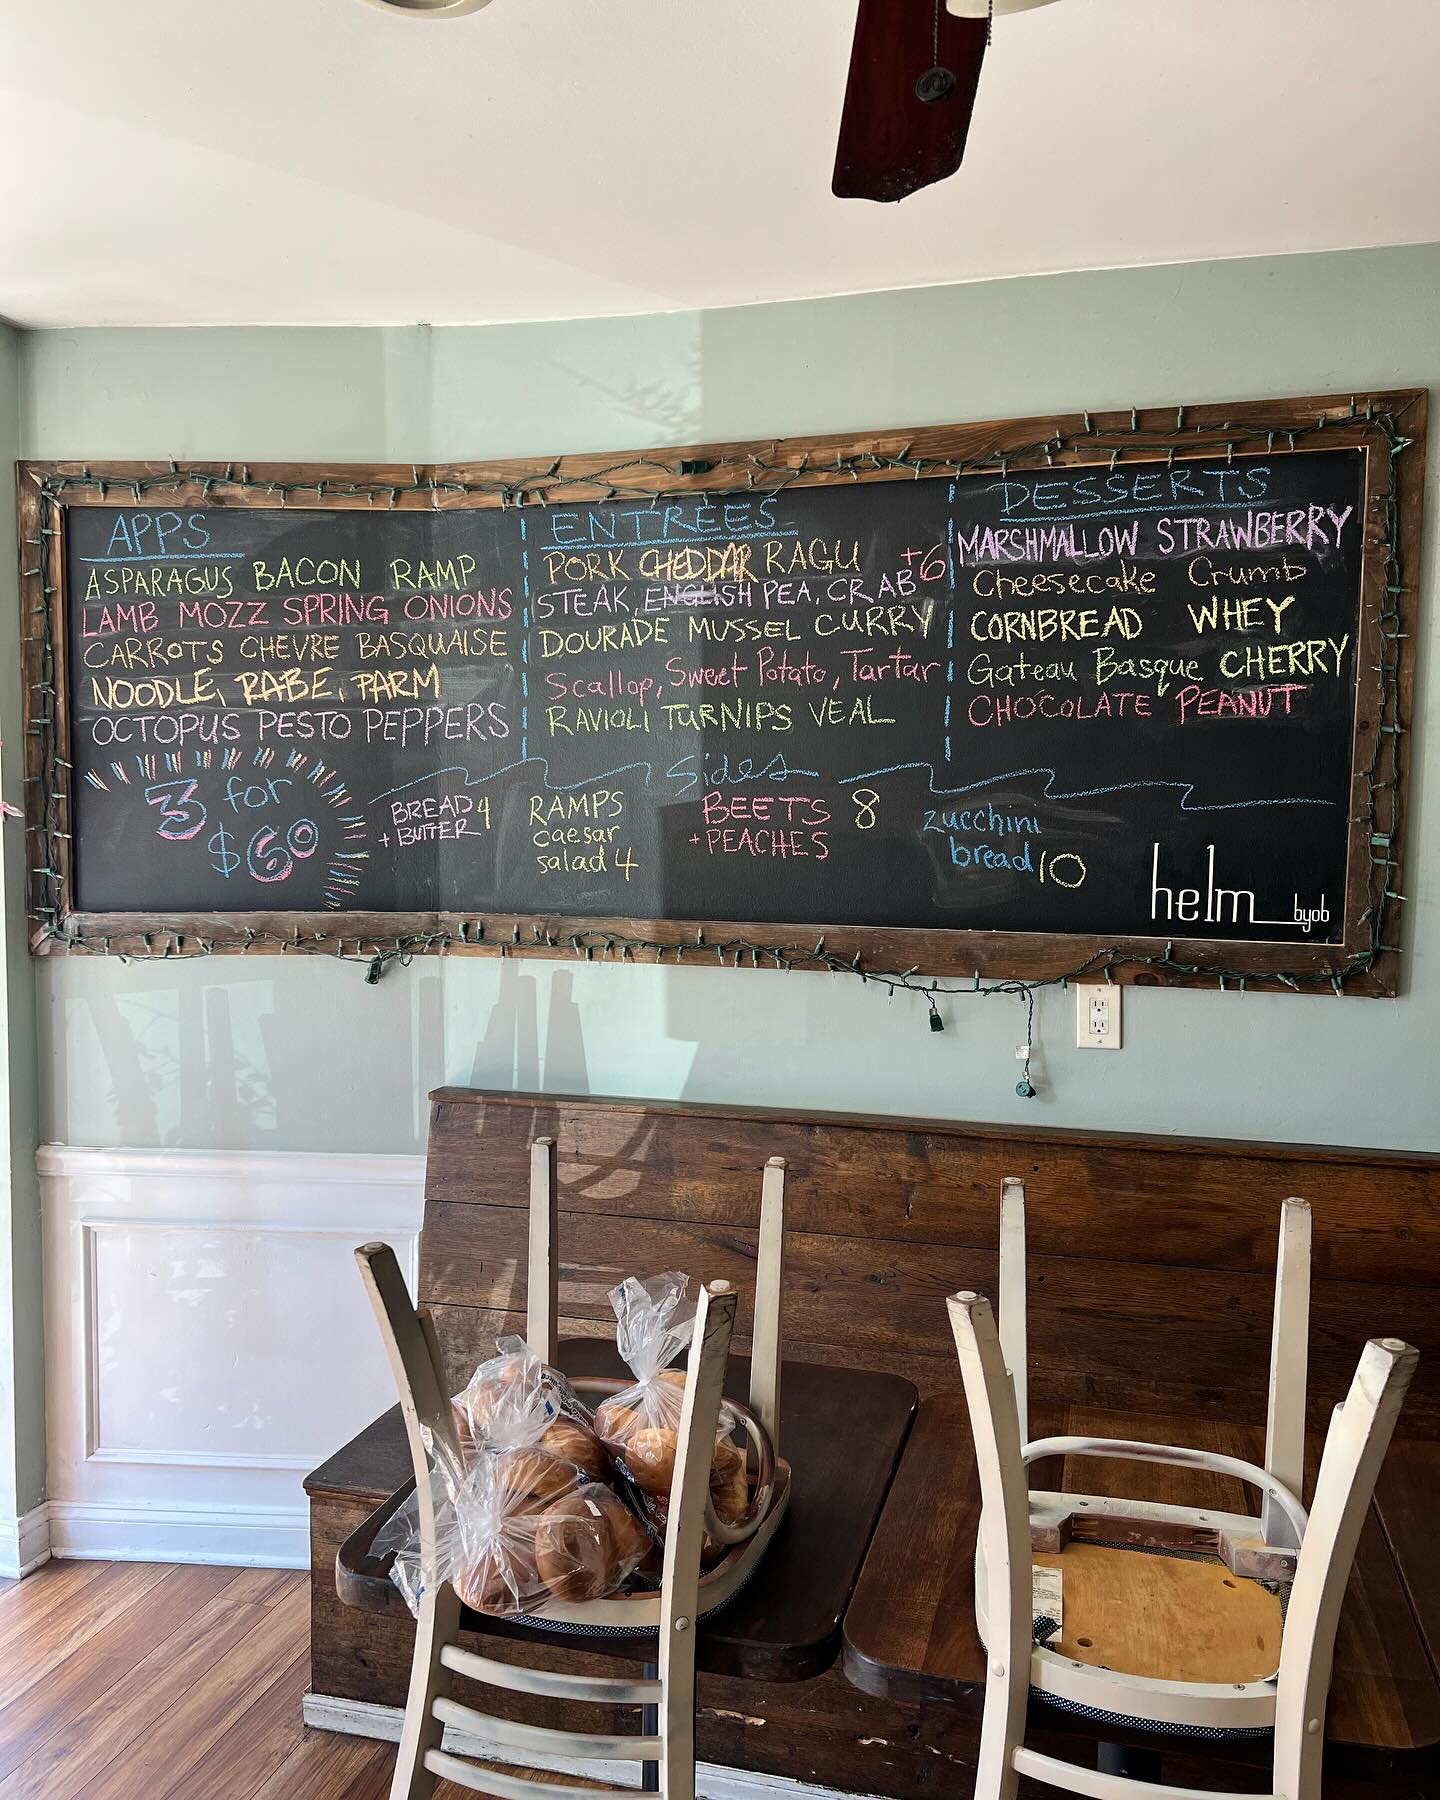 APPS
ASPARAGUS BACON RAMP
LAMB MOZZ SPRING ONIONS
CARROTS CHEVRE BASQUAISE
NOODLE, RABE, PARM
OCTOPUS PESTO PEPPERS
3 for
$60
ENTREES
PORK CHEDDAR RAGU
STEAK, ENGLISH PEA, CRAB +6
DOURADE MUSSEL CURRY
Scallop, Sweet Potato, Tartar
RAVIOLI TURNIPS VEAL
DESSERTS
MARSHMALLOW STRAWBERRY
Cheesecake Crumb
CORNBREAD WHEY
Gateau Basque CHERRY
CHOCOLATE PEANUT
Sides
BREAD 4
+ BUTTER
RAMPS
caesar
salad 4
BEETS 8
+ PEACHES
zucchini
bread 10
helm byob